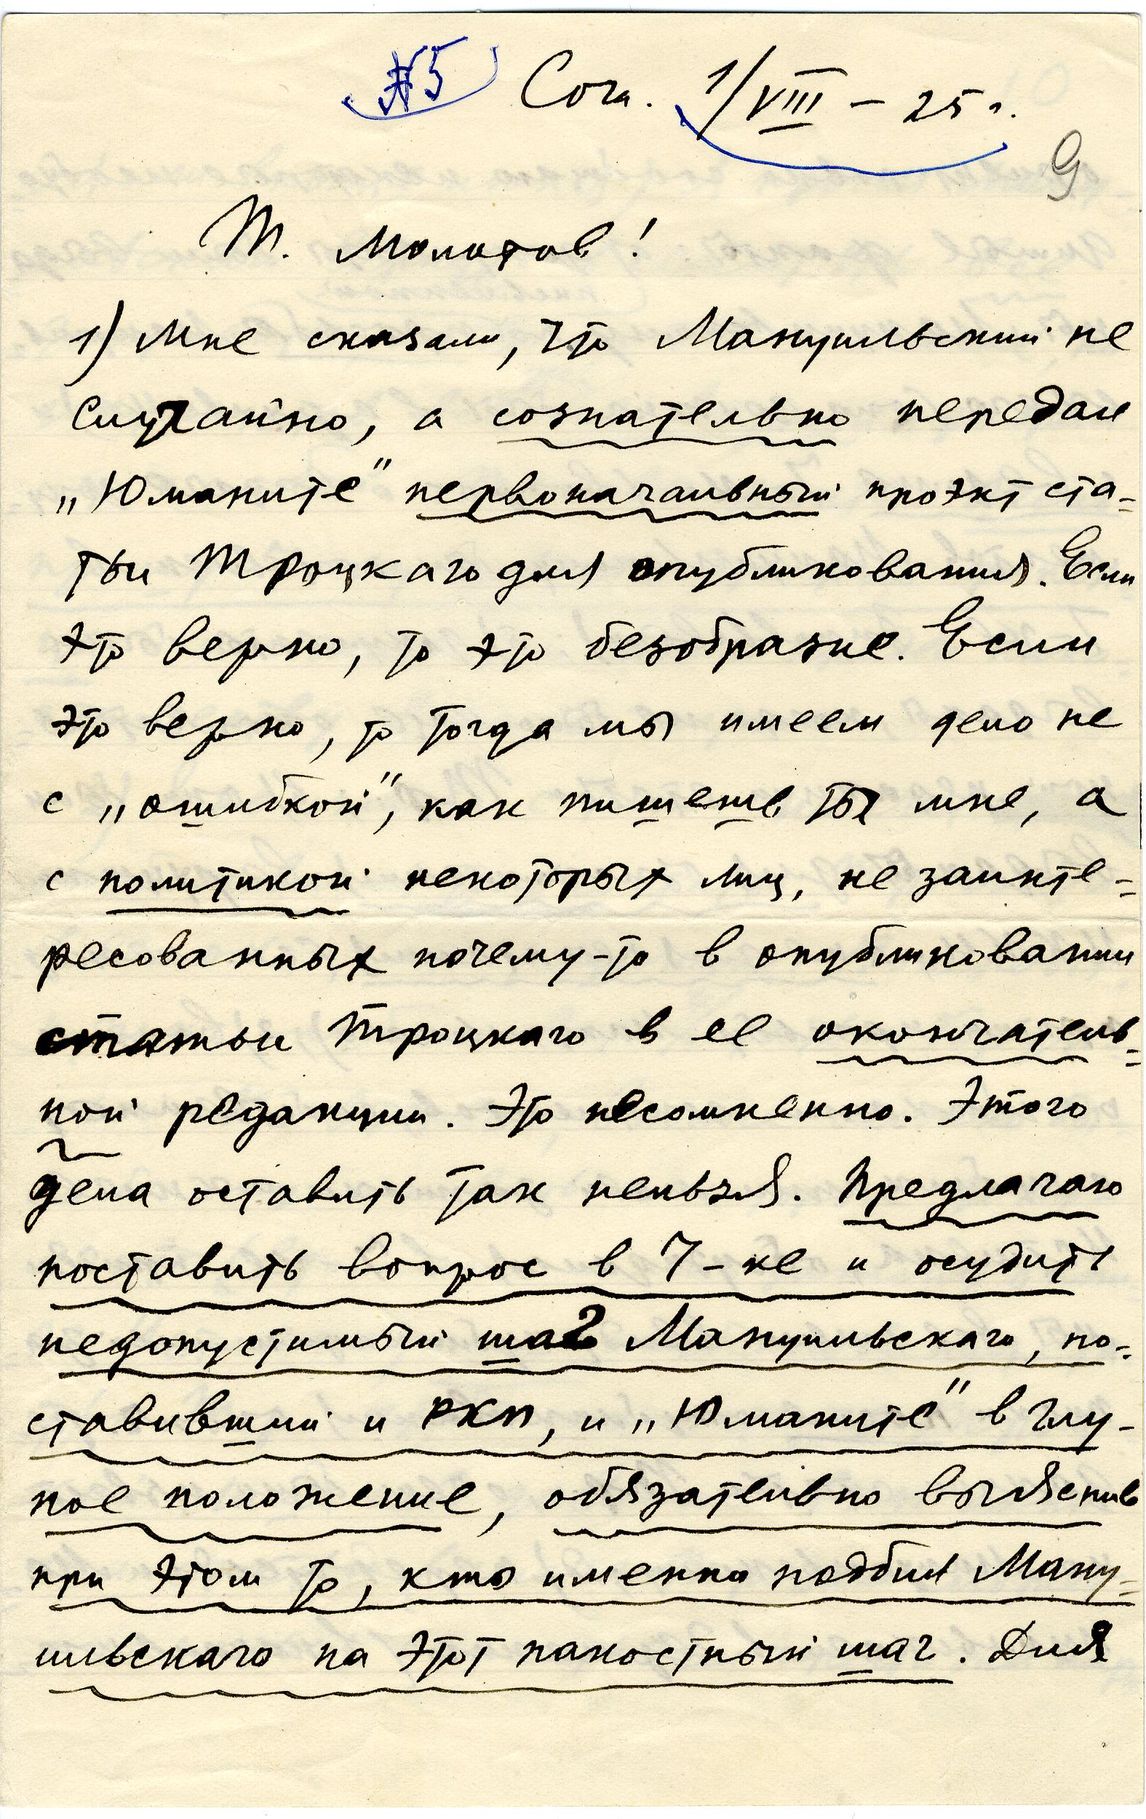 №5 Сочи. 1/VIII – 25 г.
9
Т. Молотов!
1) Мне сказали, что Мануильский не
случайно, а сознательно передал
„Юманите" первоначальный проэкт ста-
тьи Троцкаго для опубликования. Если
это верно, то это безобразие. Если
это верно, то тогда мы имеем дело не
с „ошибкой", как пишешь ты мне, а
с политикой некоторых лиц, не заинте-
ресованных почему-то в опубликовании
статьи Троцкаго в ее окончатель-
ной редакции. Это несомненно. Этого
дела оставить так нельзя. Предлагаю
поставить вопрос в 7-ке и осудить
недопустимый шаг Мануильскаго, по-
ставивший и РКП, и „Юманите" в глу-
пое положение, обязательно выяснив
при этом то, кто именно подбил Ману-
ильскаго на этот пакостный шаг. Для